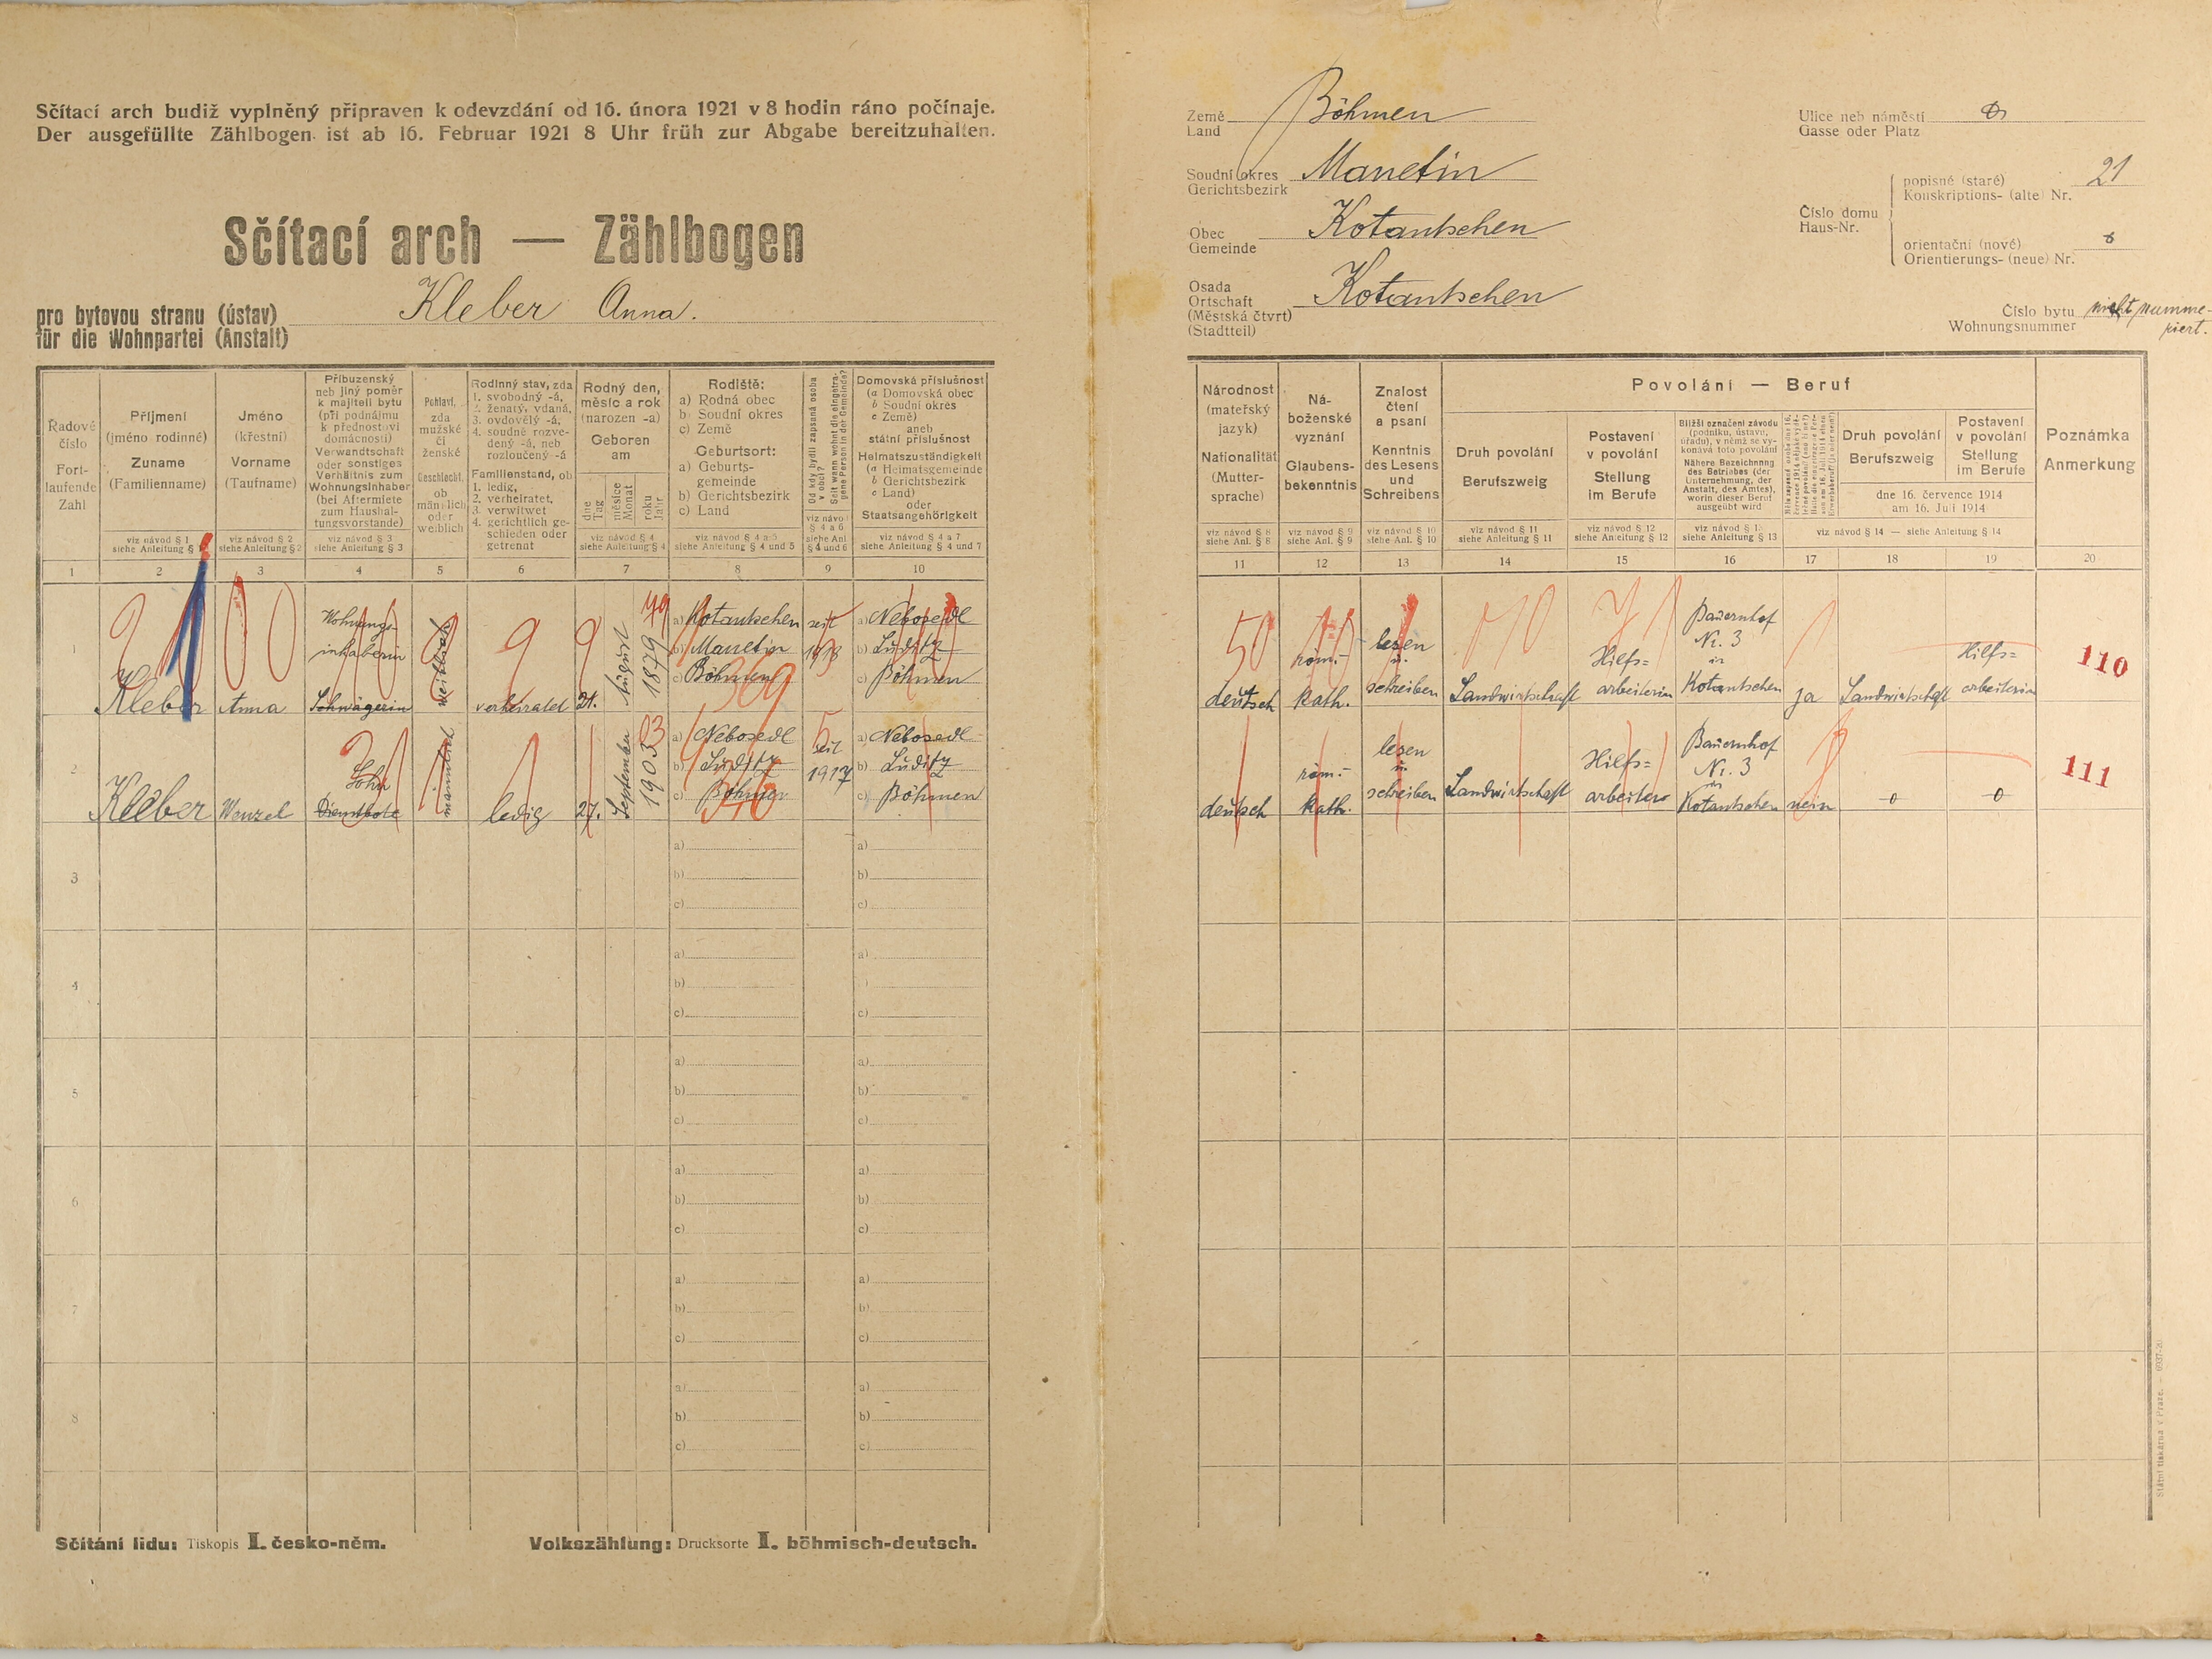 Sčítací arch budiž vyplněný připraven k odevzdání od 16. února 1921 v 8 hodin ráno počínaje.
Der ausgefüllte Zählbogen ist ab 16. Februar 1921 8 Uhr früh zur Abgabe bereitzuhalten.
Sčítací arch — Zählbogen
pro bytovou stranu (ústav)
für die Wohnpartei (Anstalt)
Kleber Anna.
Země
Land
Böhmen
Soudní okres
Gerichtsbezirk
Manetin
Obec
Gemeinde
Kotantschen
Osada
Ortschaft
(Městská čtvrt)
(Stadtteil)
Kotantschen
Ulice neb náměstí
Gasse oder Platz
Číslo domu
Haus-Nr.
popisné (staré)
Konskriptions- (alte) Nr.
21
orientační (nové)
Orientierungs- (neue) Nr.
Číslo bytu
Wohnungsnummer
nicht numme-
riert.
Řadové
číslo
Fort-
laufende
Zahl
Příjmení
(jméno rodinné)
Zuname
(Familienname)
viz návod § 1
siehe Anleitung §
Jméno
(křestní)
Vorname
(Taufname)
viz návod § 2
siehe Anleitung § 2
Příbuzenský
neb jiný poměr
k majiteli bytu
(při podnájmu
k přednostovi
domácnosti)
Verwandtschaft
oder sonstiges
Verhältnis zum
Wohnungsinhaber
(bei Aftermiete
zum Haushal-
tungsvorstande)
viz návod § 3
siehe Anleitung § 3
Pohlaví,
zda
mužské
či
ženské
Geschlecht,
ob
männlich
oder
weiblich
Rodinný stav, zda
1. svobodný -á,
2. ženatý, vdaná,
3. ovdovělý -á,
4. soudně rozve-
dený -á, neb
rozloučený -á
Familienstand, ob
1. ledig,
2. verheiratet,
3. verwitwet
4. gerichtlich ge-
schieden oder
getrennt
Rodný den,
měsíc a rok
(narozen -a)
Geboren
am
dne
Tag
měsíce
Monat
roku
Jahr
viz návod § 4
siehe Anleitung § 4
Rodiště:
a) Rodná obec
b) Soudní okres
c) Země
Geburtsort:
a) Geburts-
gemeinde
b) Gerichtsbezirk
c) Land
viz návod § 4 a 5
siehe Anleitung § 4 und 5
Od kdy bydlí zapsaná osoba
v obci?
Seit wann wohnt die eingetra-
gene Person in der Gemeinde?
viz návod
§ 4 a 6
siehe Anl
§ 4 und 6
Domovská příslušnost
(a Domovská obec
b Soudní okres
c Země)
aneb
státní příslušnost
Heimatszuständigkeit
(a Heimatsgemeinde
b Gerichtsbezirk
c Land)
oder
Staatsangehörigkeit
viz návod § 4 a 7
siehe Anleitung § 4 und 7
Národnost
(mateřský
jazyk)
Nationalität
(Mutter-
sprache)
viz návod § 8
siehe Anl. § 8
Ná-
boženské
vyznání
Glaubens-
bekenntnis
viz návod § 9
siehe Anl. § 9
Znalost
čtení
a psaní
Kenntnis
des Lesens
und
Schreibens
viz návod § 10
siehe Anl. § 10
Povolání — Beruf
Druh povolání
Berufszweig
viz návod § 11
siehe Anleitung § 11
Postavení
v povolání
Stellung
im Berufe
viz návod § 12
siehe Anleitung § 12
Bližší označení závodu
(podniku, ústavu,
úřadu), v němž se vy-
konává toto povolání
Nähere Bezeichnung
des Betriebes (der
Unternehmung, der
Anstalt, des Amtes),
worin dieser Beruf
ausgeübt wird
viz návod § 13
siehe Anleitung § 13
Druh povolání
Berufszweig
Postavení
v povolání
Stellung
im Berufe
dne 16. července 1914
am 16. Juli 1914
viz návod § 14 — siehe Anleitung § 14
Poznámka
Anmerkung
1 2 3 4 5 6 7 8 9 10
11 12 13 14 15 16 17 18 19 20
1
Kleber
Anna
Wohnungs-
inhaberin
Schwägerin
weiblich
verheiratet
21.
August
1879
79
a) Kotantschen
b) Manetin
c) Böhmen
369
seit
1918
a) Nebosedl
b) Luditz
c) Böhmen
50
deutsch
röm.-
kath.
lesen
u.
schreiben
Landwirtschaft
Hilfs=
arbeiterin
Bauernhof
Nr. 3
in
Kotantschen
ja
Landwirtschaft
Hilfs=
arbeiterin
110
2
Kleber
Wenzel
Sohn
Dienstbote
männlich
ledig
27.
September
1903
03
a) Nebosedl
b) Luditz
c) Böhmen
5
seit
1917
a) Nebosedl
b) Luditz
c) Böhmen
deutsch
röm.-
kath.
lesen
u.
schreiben
Landwirtschaft
Hilfs=
arbeiter
Bauernhof
Nr. 3
in
Kotantschen
nein
0
0
111
3
a)
b)
c)
a)
b)
c)
4
a)
b)
c)
a)
c)
5
a)
b)
c)
a)
b)
c)
6
a)
b)
c)
a)
b)
c)
7
a)
b)
c)
a)
b)
c)
8
a)
b)
c)
a)
b)
c)
Sčítání lidu: Tiskopis I. česko-něm.
Volkszählung: Drucksorte I. böhmisch-deutsch.
Státní tiskárna v Praze.